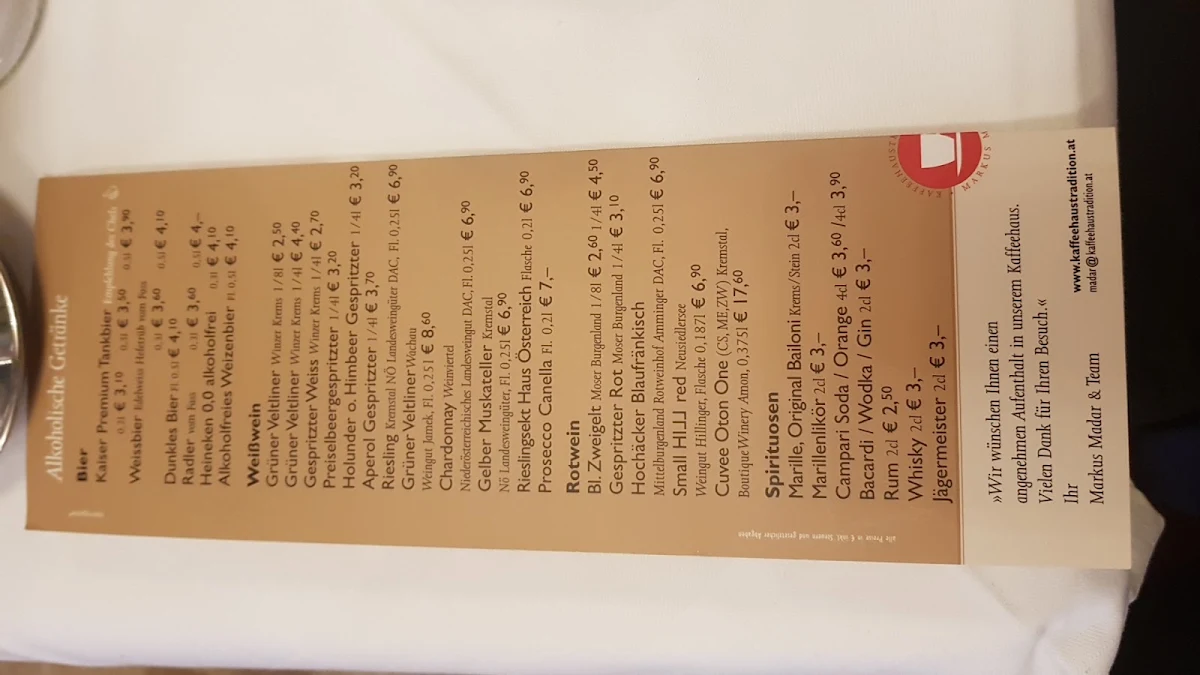 Alkoholische Getränke
Bier
Kaiser Premium Tankbier Empfehlung des Chefs
0,2l € 3,10 0,3l € 3,50 0,5l € 3,90
Weissbier Edelweiss Hefetrüb vom Fass
0,3l € 3,60 0,5l € 4,10
Dunkles Bier Fl. 0,5l € 4,10
Radler vom Fass 0,3l € 3,60 0,5l € 4,–
Heineken 0,0 alkoholfrei 0,3l € 4,10
Alkoholfreies Weizenbier Fl. 0,5l € 4,10
Weißwein
Grüner Veltliner Winzer Krems 1/8l € 2,50
Grüner Veltliner Winzer Krems 1/4l € 4,40
Gespritzter Weiss Winzer Krems 1/4l € 2,70
Preiselbergespritzter 1/4l € 3,20
Holunder o. Himbeer Gespritzter 1/4l € 3,20
Aperol Gespritzter 1/4l € 3,70
Riesling Kremstal NÖ Landesweingüter DAC, Fl. 0,25l € 6,90
Grüner Veltliner Wachau
Weingut Jamek, Fl. 0,25l € 8,60
Chardonnay Weinviertel
Niederösterreichisches Landesweingut DAC, Fl. 0,25l € 6,90
Gelber Muskateller Kremstal
Nö Landesweingüter, Fl. 0,25l € 6,90
Rieslingsekt Haus Österreich Flasche 0,2l € 6,90
Prosecco Canella Fl. 0,2l € 7,–
Rotwein
Bl. Zweigelt Moser Burgenland 1/8l € 2,60 1/4l € 4,50
Gespritzter Rot Moser Burgenland 1/4l € 3,10
Hochäcker Blaufränkisch
Mittelburgenland Rotweinhof Amminger DAC, Fl. 0,25l € 6,90
Small HILL red Neusiedlersee
Weingut Hillinger, Flasche 0,187l € 6,90
Cuvee Oton One (CS, ME, ZW) Kremstal,
Boutique Winery Amon, 0,375l € 17,60
Spirituosen
Marille, Original Bailoni Krems/Stein 2cl € 3,–
Marillenlikör 2cl € 3,–
Campari Soda / Orange 4cl € 3,60 /4cl 3,90
Bacardi / Wodka / Gin 2cl € 3,–
Rum 2cl € 2,50
Whisky 2cl € 3,–
Jägermeister 2cl € 3,–
alle Preise in € inkl. Steuern und gesetzlicher Abgaben
KAFFEEHAUSTRA
MARKUS M
»Wir wünschen Ihnen einen
angenehmen Aufenthalt in unserem Kaffeehaus.
Vielen Dank für Ihren Besuch.«
Ihr
Markus Madar & Team
www.kaffeehaustradition.at
madar@kaffeehaustradition.at